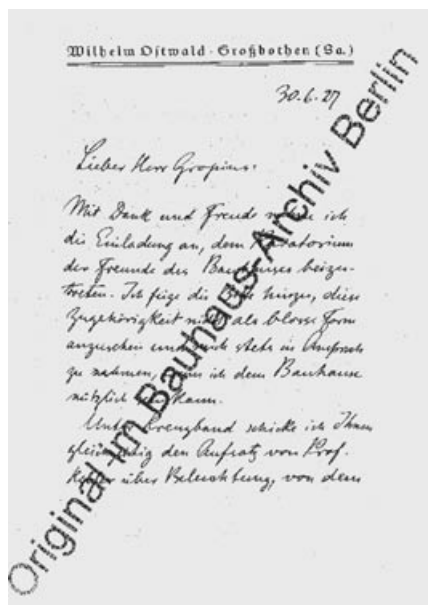 Wilhelm Ostwald · Großbothen (Sa.)
30.6.27
Lieber Herr Gropius.
Mit Dank und Freude ich
die Einladung an, dem
der Freunde des Bauhauses beizu-
treten. Ich füge die hinzu, diese
Zugehörigkeit nicht als blosse Form
anzusehen und stets in Anspruch
zu nehmen, wenn ich dem Bauhause
nützlich kann.
Unter Kreuzband schicke ich Ihnen
gleichzeitig den Aufsatz von Prof.
über Beleuchtung, von dem
Original im Bauhaus-Archiv Berlin